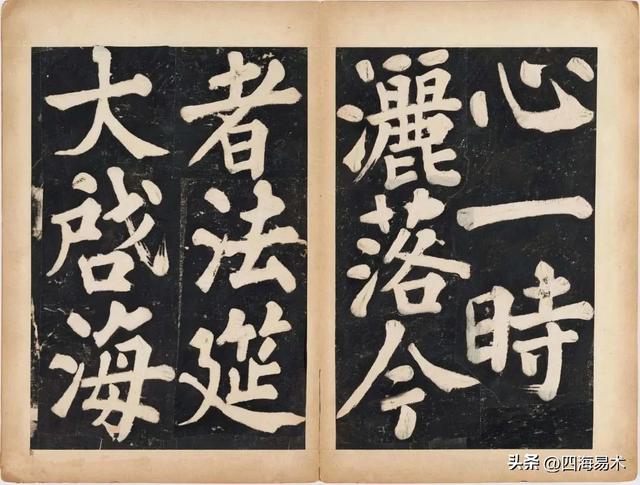 心一時
灑落今
者法筵
大啓海
头条 @四海易木